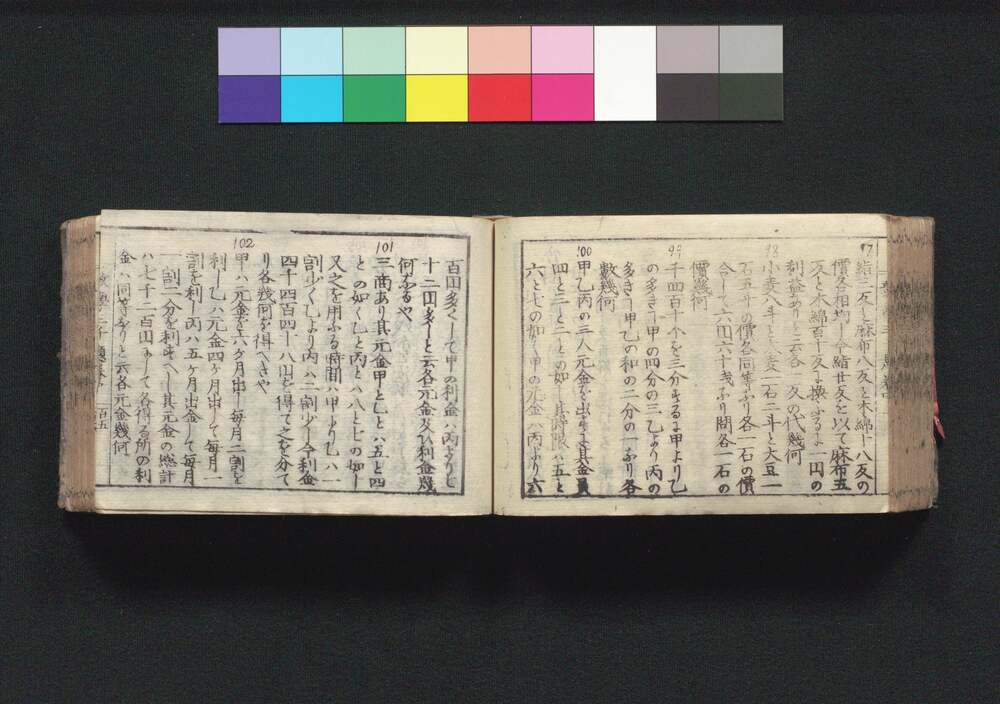 97
絹二反ト麻布八反ト木綿十八反の
價各相均し今絹廿反を以て麻布五
反と木綿百十反に換ふるに一円の
利益ありと云各一反の代幾何
98
小麦八斗と小麦二石二斗と大豆一
石五斗の價各同等なり各一石の價
合して六円六十戋なり問各一石の
價幾何
99
千四百十个を三分するに甲より乙
の多き甲の四分の三乙より丙の
多き甲乙の和の二分の一なり各
數幾何
100
甲乙丙の三人元金を出す其金員
四と三と二との如し其時限ハ五と
六と七の如し甲の元金ハ丙より六
百円多くして甲の利金ハ丙より七
十二円多しと云各元金及ひ利金幾
何なるや
101
三商あり其元金甲と乙とハ五と四
との如く乙と丙とハ八と七の如し
又之を用ふる時間ハ甲より乙ハ一
割少く乙より丙ハ二割少し今利金
四千四百四十八円を得て之を分て
り各幾何を得へきや
102
甲ハ元金を六ケ月出し毎月二割を
利し乙ハ元金四ケ月出して毎月一
割を利し丙ハ五ケ月出金して毎月
一割二分を利せへし其元金の惣計
ハ七千二百円にして各得る所の利
金ハ同等なりと云各元金幾何
百五